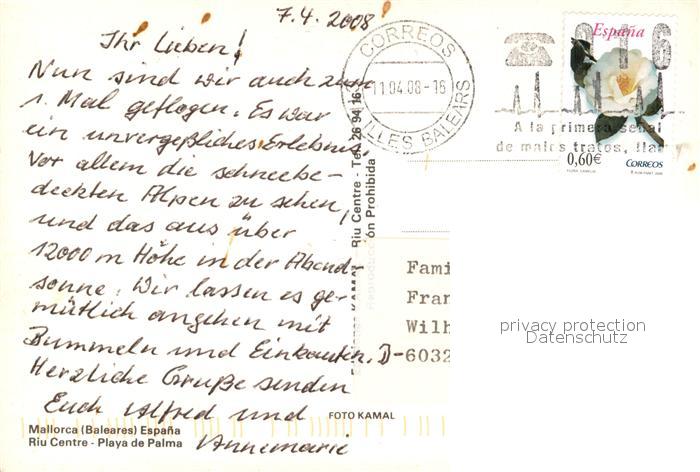 7.4.2008
Ihr Lieben!
Nun sind wir auch zum
1. Mal geflogen. Es war
ein unvergeßliches Erlebnis,
Vor allem die schneebe-
deckten Alpen zu sehen,
und das aus über
12000 m Höhe in der Abend-
sonne. Wir lassen es ge-
mütlich angehen mit
Bummeln und Einkaufen.
Herzliche Grüße senden
Euch Alfred und
Annemarie
Mallorca (Baleares) España
Riu Centre - Playa de Palma
FOTO KAMAL
KAMAL Riu Centre - Tel. 26 94 16
ón Prohibida
CORREOS
11.04.08-16
ILLES BALEARS
A la primera señal
de malos tratos, lla
España
0,60€ CORREOS
Fami
Fran
Wilh
D-6032
privacy protection
Datenschutz